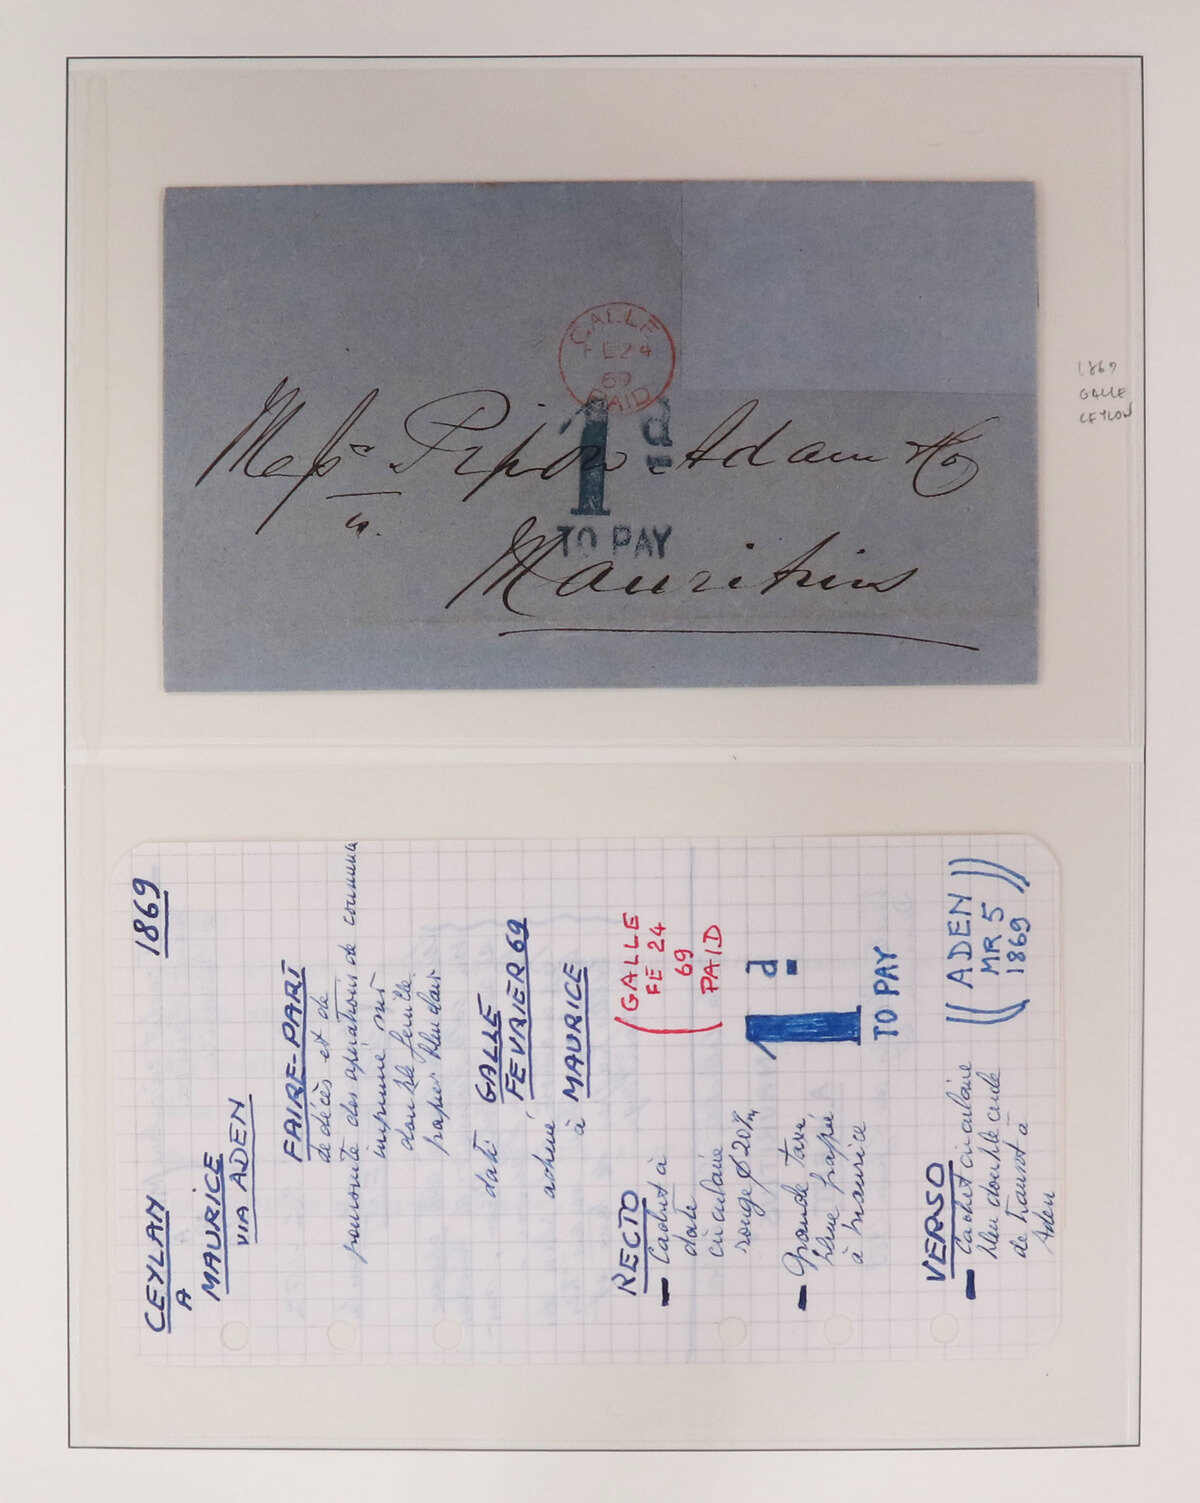 GALLE
FE 24
69
PAID
1d
TO PAY
Adam & Co
Mauritius
1869
GALLE
CEYLON
CEYLAN 1869
A
MAURICE
VIA ADEN
FAIRE-PART
de décès et de
poursuite des opérations de
imprimé sur
double feuille
papier bleu clair
daté GALLE
FEVRIER 69
à MAURICE
RECTO
Cachet à
date
circulaire
rouge ϕ 20 m/m
(GALLE
FE 24
69
PAID
Grande taxe
bleue frappée
à Maurice
1d
TO PAY
VERSO
Cachet circulaire
bleu double cercle
de transit à
Aden
((ADEN))
MR 5
1869